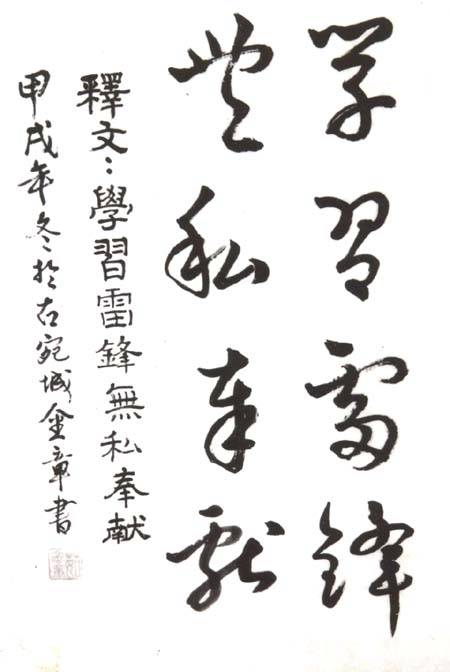 学習雷鋒
無私奉献
釋文：學習雷鋒無私奉献
甲戌年冬於古宛城金章書